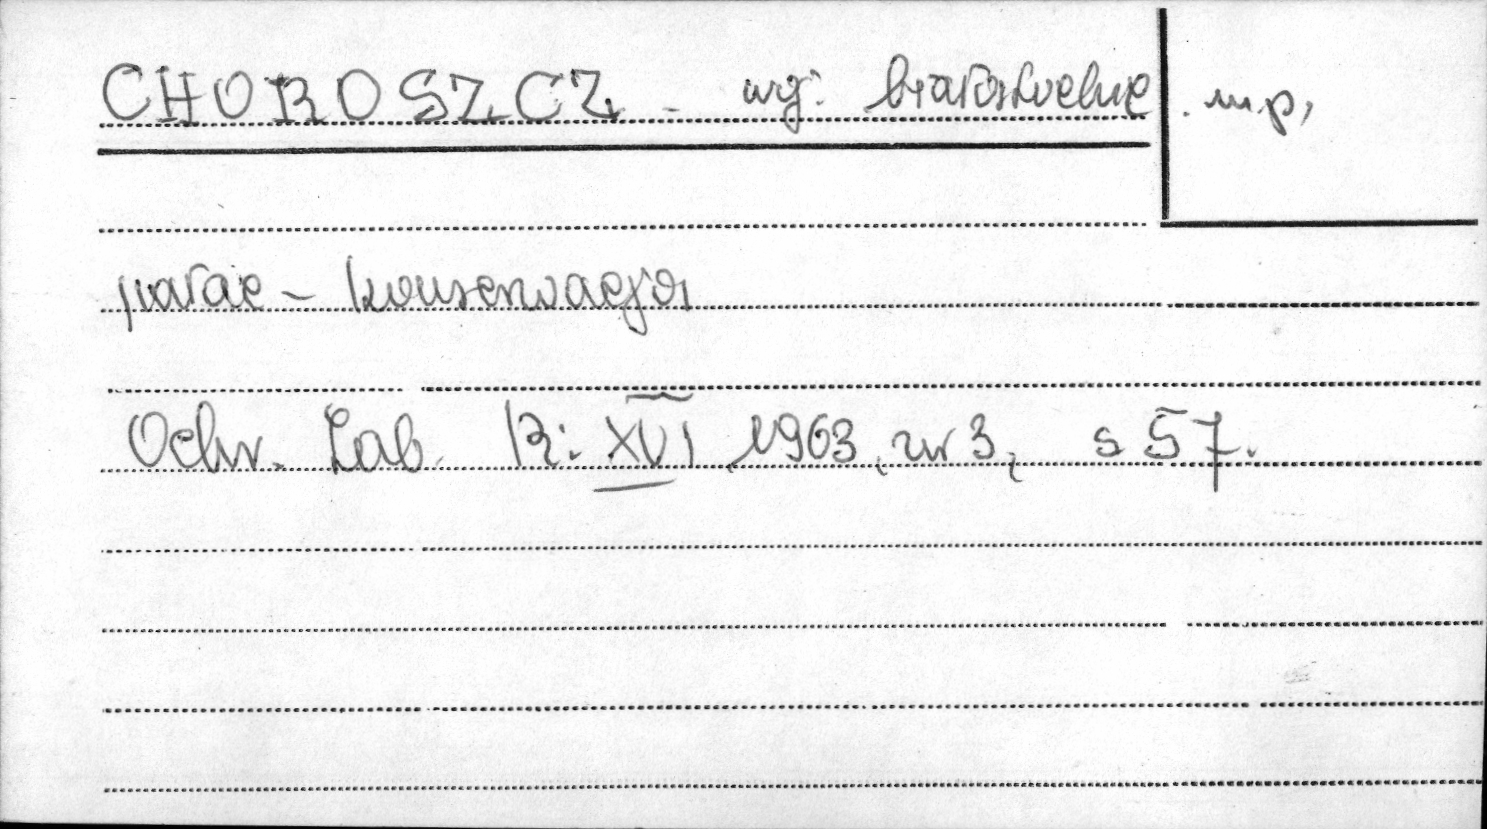 CHOROSZCZ - woj. białostockie
m.p.
pałac - konserwacja
Ochr. Zab. R: XVI 1963, nr 3, s 57.